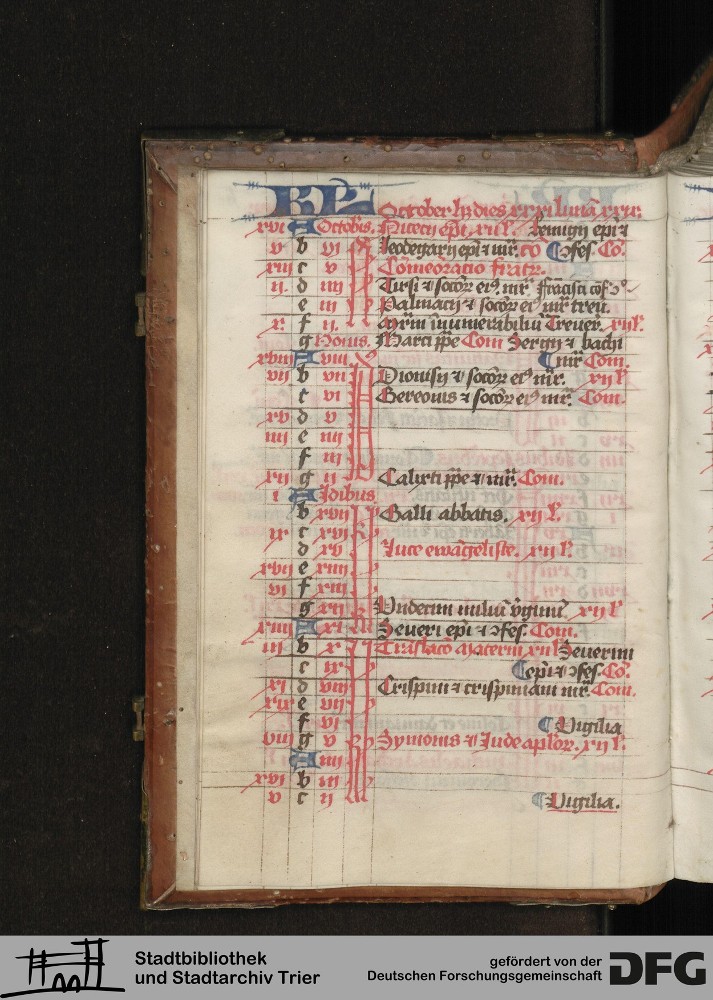 KL October hʒ dies xxxi luna xxix.
xvi A Octobris. Nicecii epi. xii l'. Remigii epi ⁊
v b vi Leodegarii epi ⁊ mr̄. cō Cōfes. Co.
xiii c v Cōmeōracio fratr̄.
ii d iiii Tirsi ⁊ socoꝝ eiꝰ mr̄ francisci cōf
e iii Palmacii ⁊ socoꝝ eiꝰ mr̄ treū.
x f ii Mr̄m innumerabiliū Trever. xii l'.
g Nonis. Marci ppe Com Sergii ⁊ bachi
xviii A viii mr̄ Com.
vii b vii Dionisii ⁊ socoꝝ eiꝰ mr̄. xii l'
c vi Gereonis ⁊ socoꝝ eiꝰ mr̄. Com.
xv d v
iiii e iiii
f iii
xii g ii Calixti ppe ⁊ mr̄. Com.
i A Idibus
b xvii Galli abbatis. xii l'.
ix c xvi
d xv Luce ewāgeliste. xii l'.
xvii e xiiii
vi f xiii
g xii Undecim miliū v̄ginū xii l'
xiiii A xi Severi epi ⁊ ↄfes. Com.
iii b x Trāslatō Materni xii l' Severini
c ix epi ⁊ ↄfes. Co.
xi d viii Crispini ⁊ crispiniani mr̄. Com.
xix e vii
f vi Vigilia
viii g v Symonis ⁊ Jude aplor. xii l'.
A iiii
xvi b iii
v c ii Vigilia.
Stadtbibliothek
und Stadtarchiv Trier
gefördert von der
Deutschen Forschungsgemeinschaft
DFG